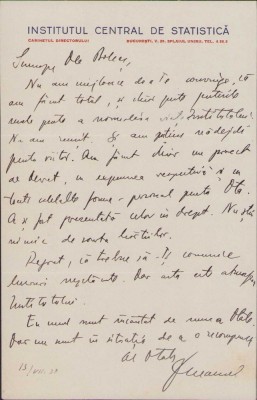 INSTITUTUL CENTRAL DE STATISTICĂ
CABINETUL DIRECTORULUI
BUCUREȘTI, SPLAIUL UNIREI, TEL.
Scumpe Dle
Nu am mijloace de a te convinge, că
am făcut totul, și chiar peste puterile
mele pentru a Institutului.
Nu am reușit. Și am puține nădejdi
pentru viitor. Am făcut chiar un proect
de decret, cu expunerea respectivă și cu
toate celelalte forme - personal pentru Dta.
A și fost prezentată celor în drept. Nu știu
nimic de soarta hârtiilor.
Regret, că trebue să Îți comunic
lucruri neplăcute. Dar asta este atmosfera
Institutului.
Eu unul sunt încântat de munca Dtale.
Dar nu sunt în situația de a o recompensa
Al Dtale